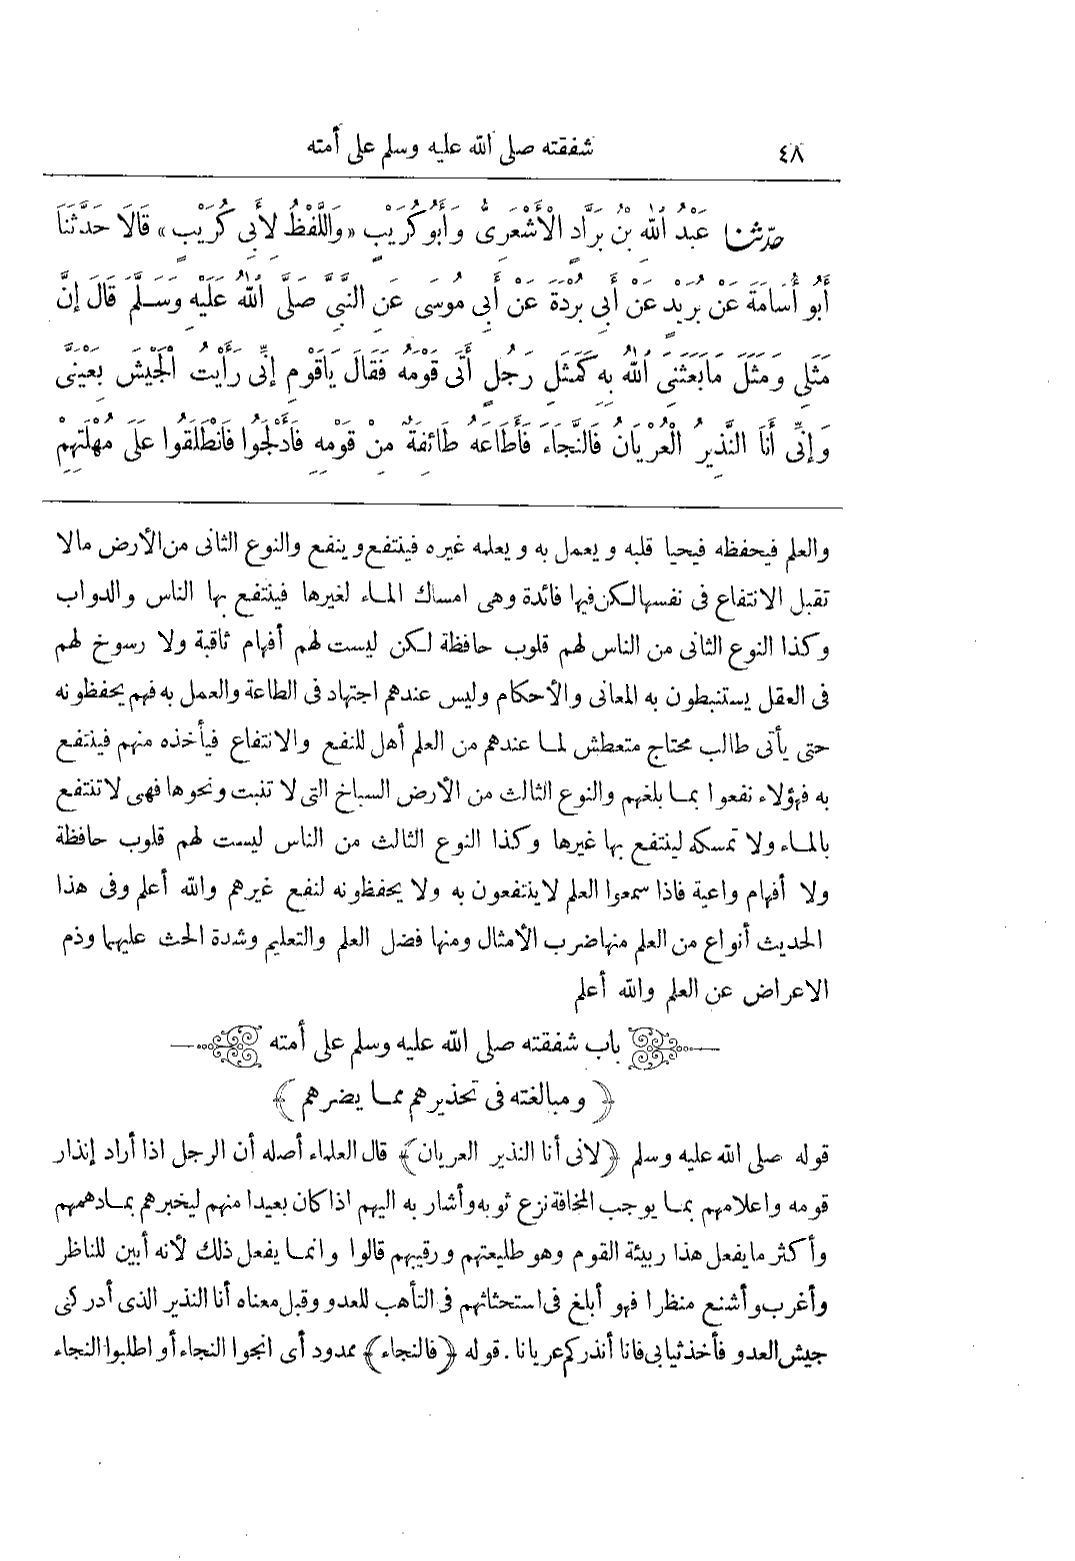 ٤٨ شفقته صلى الله عليه وسلم على أمته
حدّثنا عَبْدُ اللهِ بْنُ بَرَّادٍ الْأَشْعَرِىُّ وَأَبُو كُرَيْبٍ «وَاللَّفْظُ لِأَبِى كُرَيْبٍ» قَالَا حَدَّثَنَا
أَبُو أُسَامَةَ عَنْ بُرَيْدٍ عَنْ أَبِى بُرْدَةَ عَنْ أَبِى مُوسَى عَنِ النَّبِىِّ صَلَّى اللهُ عَلَيْهِ وَسَلَّمَ قَالَ إِنَّ
مَثَلِى وَمَثَلَ مَا بَعَثَنِىَ اللهُ بِهِ كَمَثَلِ رَجُلٍ أَتَى قَوْمَهُ فَقَالَ يَاقَوْمِ إِنِّى رَأَيْتُ الْجَيْشَ بِعَيْنَىَّ
وَإِنِّى أَنَا النَّذِيرُ الْعُرْيَانُ فَالنَّجَاءَ فَأَطَاعَهُ طَائِفَةٌ مِنْ قَوْمِهِ فَأَدْلَجُوا فَانْطَلَقُوا عَلَى مُهْلَتِهِمْ
والعلم فيحفظه فيحيا قلبه ويعمل به ويعلمه غيره فينتفع وينفع والنوع الثانى من الأرض مالا
تقبل الانتفاع فى نفسها لكن فيها فائدة وهى امساك الماء لغيرها فينتفع بها الناس والدواب
وكذا النوع الثانى من الناس لهم قلوب حافظة لكن ليست لهم أفهام ثاقبة ولا رسوخ لهم
فى العقل يستنبطون به المعانى والأحكام وليس عندهم اجتهاد فى الطاعة والعمل به فهم يحفظونه
حتى يأتى طالب محتاج متعطش لما عندهم من العلم أهل للنفع والانتفاع فيأخذه منهم فينتفع
به فهؤلاء نفعوا بما بلغهم والنوع الثالث من الأرض السباخ التى لا تنبت ونحوها فهى لا تنتفع
بالماء ولا تمسكه لينتفع بها غيرها وكذا النوع الثالث من الناس ليست لهم قلوب حافظة
ولا أفهام واعية فاذا سمعوا العلم لا ينتفعون به ولا يحفظونه لنفع غيرهم والله أعلم وفى هذا
الحديث أنواع من العلم منها ضرب الأمثال ومنها فضل العلم والتعليم وشدة الحث عليهما وذم
الاعراض عن العلم والله أعلم
باب شفقته صلى الله عليه وسلم على أمته
﴿ومبالغته فى تحذيرهم مما يضرهم﴾
قوله صلى الله عليه وسلم ﴿لانى أنا النذير العريان﴾ قال العلماء أصله أن الرجل اذا أراد إنذار
قومه واعلامهم بما يوجب المخافة نزع ثوبه وأشار به اليهم اذا كان بعيدا منهم ليخبرهم بما دهمهم
وأكثر ما يفعل هذا ربيئة القوم وهو طليعتهم ورقيبهم قالوا وانما يفعل ذلك لأنه أبين للناظر
وأغرب وأشنع منظرا فهو أبلغ فى استحثاثهم فى التأهب للعدو وقيل معناه أنا النذير الذى أدركنى
جيش العدو فأخذ ثيابى فانا أنذركم عريانا . قوله ﴿فالنجاء﴾ ممدود أى انجوا النجاء أو اطلبوا النجاء